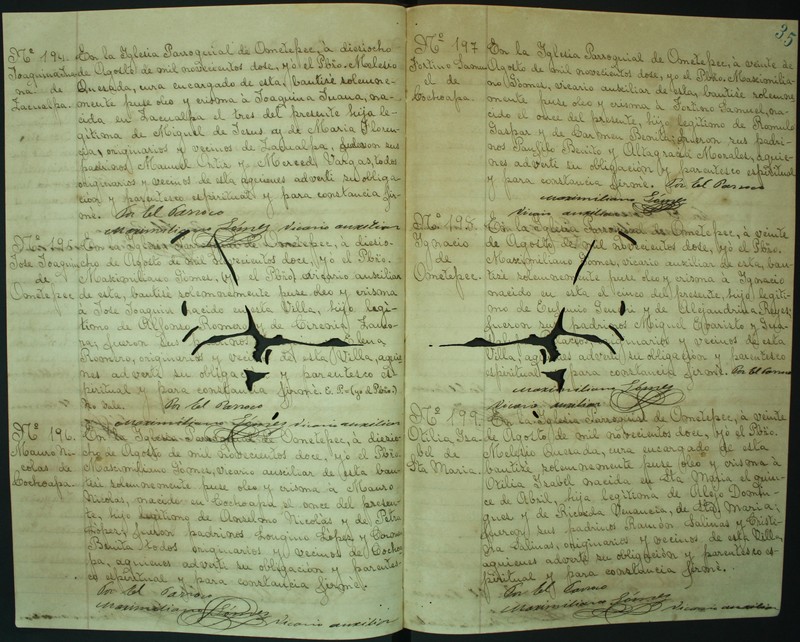 Nº 194.
Joaquina Juana
na de
Zacualpa.
En la Iglesia Parroquial de Ometepec, á dieciocho
de Agosto de mil novecientos dose, yó el Pbro. Melesio
Quesada, cura encargado de esta, bautisé solemne-
mente puse oleo y crisma á Joaquina Juana, na-
cida en Zacualpa el tres del presente hija le-
gitima de Miguel de Jesus y de Maria Floren-
cia, originarios y vecinos de Zacualpa, fueron sus
padrinos Manuel Ortiz y Merced Vargas, todos
originarios y vecinos de esta aquienes adverti su obliga-
cion y parentesco espiritual y para constancia fir-
mé. Por El Parroco
Maximiliano Gómez Vicario auxiliar
Nº 195.
Jose Joaquin
de
Ometepec
En la Iglesia de Ometepec, á diecio-
cho de Agosto de mil novecientos dose, yó el Pbro.
Maximiliano Gómes, (yó el Pbro) vicario auxiliar
de esta, bautisé solemnemente puse oleo y crisma
á Jose Joaquin nacido en esta Villa, hijo legi-
timo de Alfonso Romero y de Cirenia Zamo-
ra, fueron sus Elena
Romero, originarios y vecinos de esta Villa, aquie-
nes adverti su obligacion y parentesco es-
piritual y para constancia firmé. E. P. (yó el Pbro.)
No vale. Por El Parroco
Maximiliano Gómez Vicario auxiliar
Nº 196.
Mauro Ni-
colas de
Cochoapa.
En la Iglesia Parroquial de Ometepec, á diecio-
cho de Agosto de mil novecientos doce, yó el Pbro.
Maximiliano Gómes, vicario auxiliar de esta bau-
tisé solemnemente puse oleo y crisma á Mauro
Nicolas, nacido en Cochoapa el once del presen-
te, hijo legitimo de Anselmo Nicolas y de Petra
Lopez; fueron padrinos Longino López y
Benita todos originarios y vecinos de Cochoa-
pa, aquienes adverti su obligacion y parentes-
co espiritual y para constancia firmé.
Por El Parroco
Maximiliano Gómez Vicario auxiliar
35
Nº 197
Fortino Samu
el de
Cochoapa.
En la Iglesia Parroquial de Ometepec, á veinte de
Agosto de mil novecientos dose, yó el Pbro. Maximilia-
no Gómes, vicario auxiliar de esta, bautisé solemne-
mente puse oleo y crisma á Fortino Samuel, na-
cido el once del presente, hijo legitimo de Romulo
Gaspar y de Carmen Benita; fueron sus padri-
nos Panfilo Benito y Altagracia Morales, aquie-
nes adverti su obligacion y parentesco espiritual
y para constancia firmé. Por El Parroco
Maximiliano Gómez
Vicario auxiliar
Nº 198.
Ignacio
de
Ometepec.
En la Iglesia Parroquial de Ometepec, á veinte
de Agosto de mil novecientos dose, yó el Pbro.
Maximiliano Gómes, vicario auxiliar de esta, bau-
tisé solemnemente puse oleo y crisma á Ignacio
nacido en esta el cinco del presente, hijo legiti-
mo de Eugenio y de Alejandrina Reyes,
fueron sus padrinos Miguel Evaristo y
originarios y vecinos de esta
Villa, aquienes adverti su obligacion y parentesco
espiritual y para constancia firmé. Por El Parroco
Maximiliano Gómez
Vicario auxiliar
Nº 199.
Otilia Isa-
bel de
Sta Maria.
En la Iglesia Parroquial de Ometepec, á veinte
de Agosto de mil novecientos doce, yó el Pbro.
Melesio Quesada, cura encargado de esta
bautisé solemnemente puse oleo y crisma á
Otilia Isabel nacida en Sta Maria el quin-
ce de Abril, hija legitima de Alejo Domin-
guez y de Ricarda Venancia, de Sta Maria;
fueron sus padrinos Ramón Salinas y Cristi-
na Salinas, originarios y vecinos de esta Villa,
aquienes adverti su obligacion y parentesco es-
piritual y para constancia firmé.
Por El Parroco
Maximiliano Gómez
Vicario auxiliar